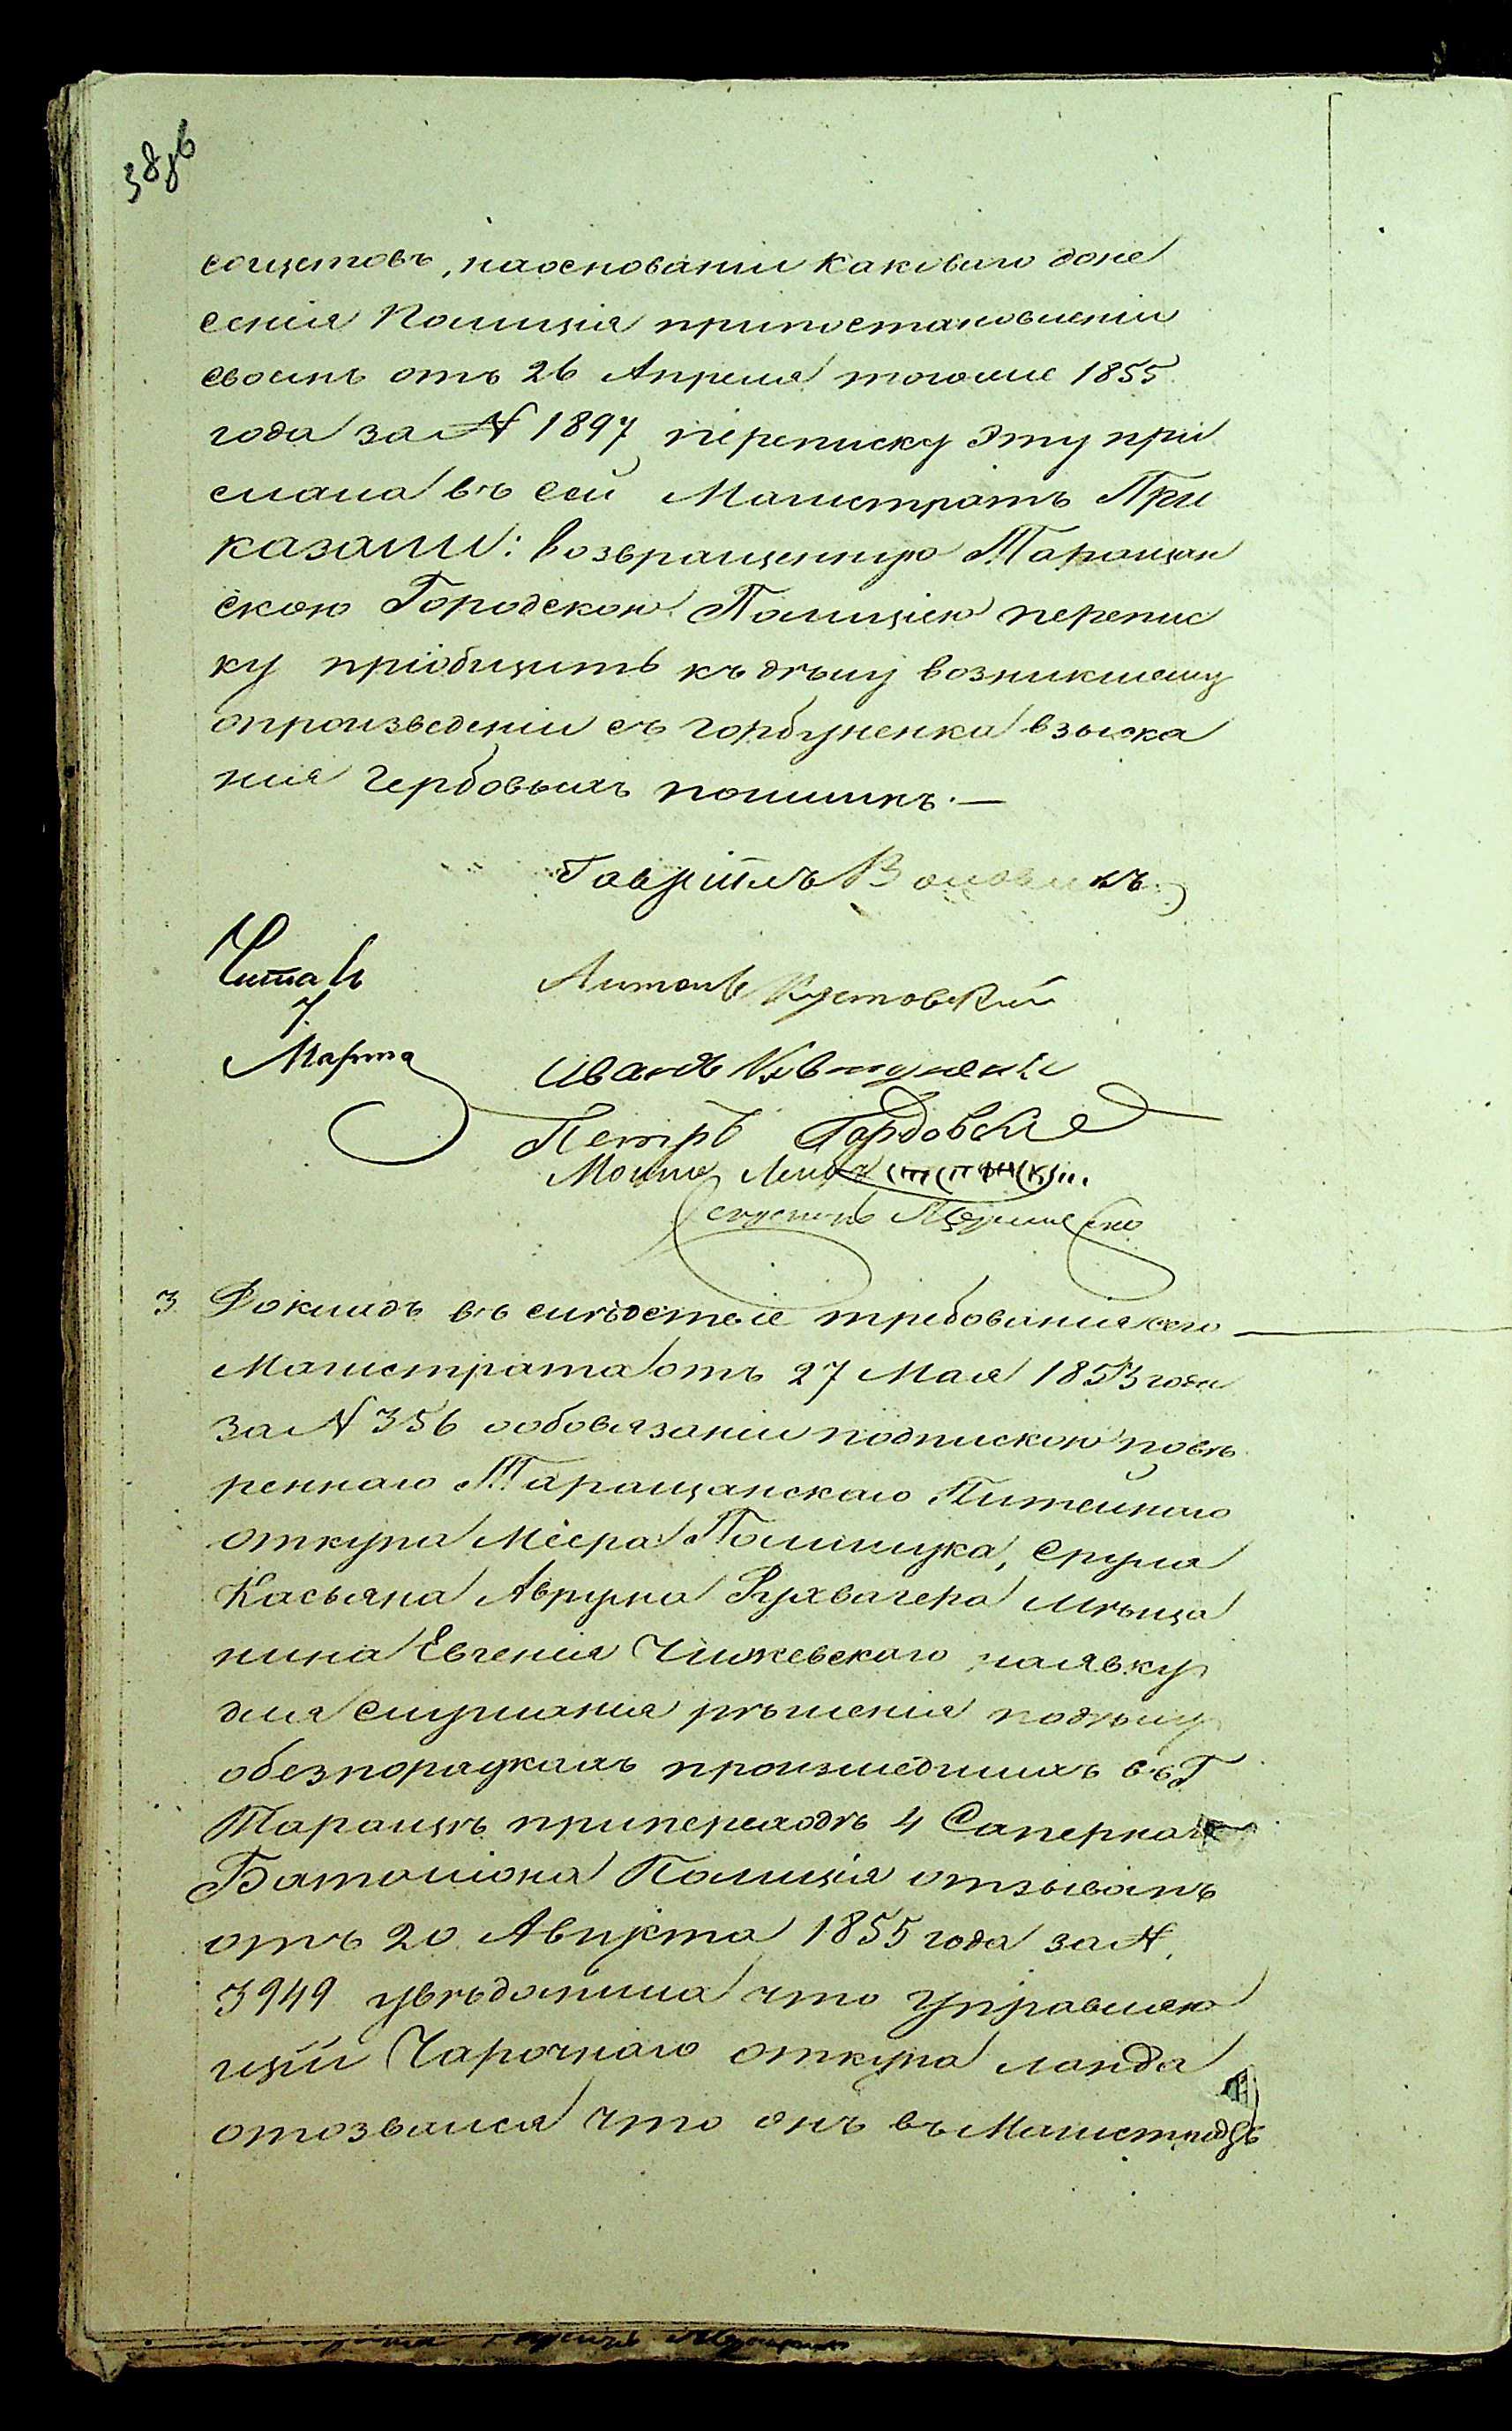 наосновании каковаго доне
сенія Полиція припостановленіи
своемъ отъ 26 Апреля тогоже 1855
года за № 1897 переписку эту при
слала въ сей Магистратъ При
казали: возвращенную Таращан
скою Городскою Полициею перепис
ку пріобщить къ дѣлу возникшему
опроизведеніи съ горбуненка взыска
нія Гербовыхъ пошлинъ.—
Гавріилъ
Читалъ
7.
Марта
Антонъ Кустовскій
Иванъ
Петръ
Мошко
3 Докладъ въ слѣдствіе требованія сего
Магистрата отъ 27 Мая 1855 года
за № 356 ообовязаніи подпискою повѣ
реннаго Таращанскаго Питейнаго
откупа Меера Полищука, Сруля
Касьяна Авруна Рухвагера мѣща
нина Евгенія Чижевскаго наявку
для слушанія рѣшенія подѣлу
обезпорядкахъ произшедшихъ въ Г
Таращѣ припереходѣ 4 Сапернаго
Баталіона Полиція отзывомъ
отъ 20 Августа 1855 года за №.
3949 увѣдомила что Управляю
щій Чарочнаго откупа ланда
отозвался что онъ въ